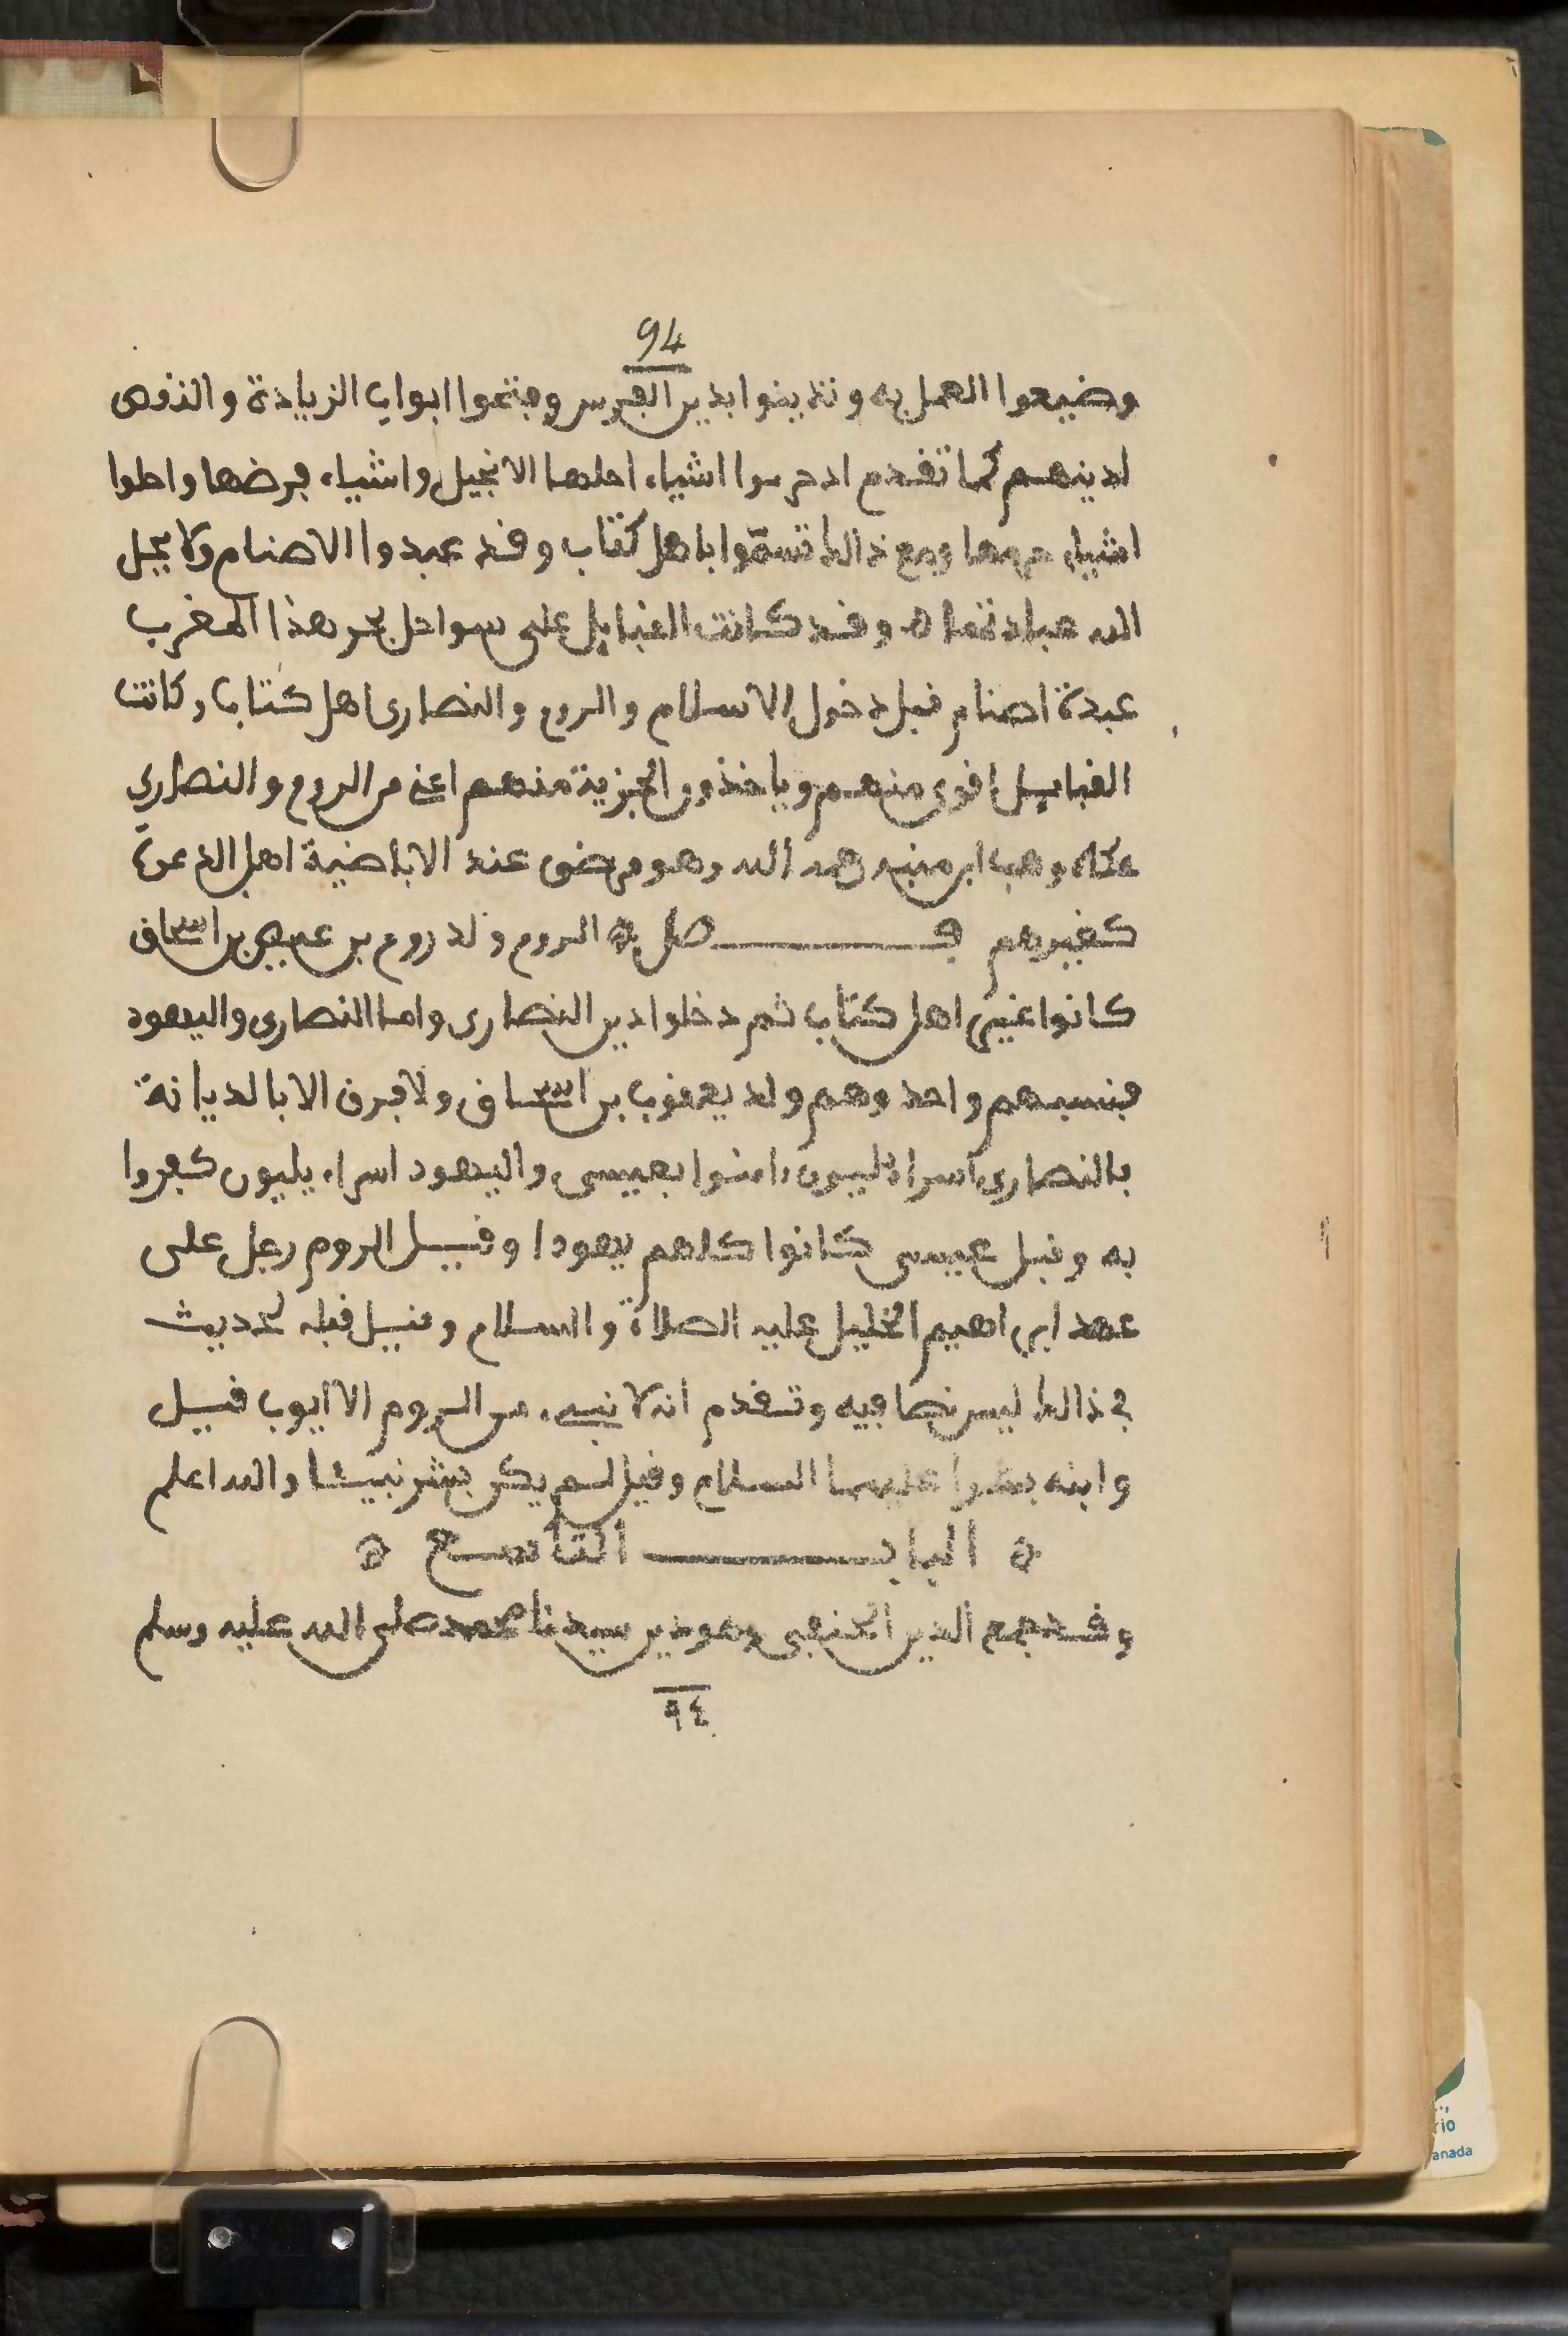 94
وضيعوا العمل به وتدينوا بدين الفرس وفتحوا ابواب الزيادة والنقص
لدينهم كما تقدم اذ حرموا اشياء احلها الانجيل واشياء فرضها واحلوا
اشياء حرمها ومع ذالك تسمّوا باهل كتاب وقد عبدوا الاصنام ولا يحل
الله عبادتها ه وقد كانت القبايل على سواحل بحر هذا المغرب
عبدة اصنام قبل دخول الاسلام والروم والنصارى اهل كتاب وكانت
القبايل اقوى منهم وياخذون الجزية منهم اعني من الروم والنصارى
وهب ابن منبه رحمه الله وهو مرضي عند الاباضية اهل الدعوة
كغيرهم فـــصل ه الروم ولد روم بن عيصى بن اسحاق
كانوا غير اهل كتاب ثم دخلوا دين النصارى واما النصارى واليهود
فنسبهم واحد وهم ولد يعقوب بن اسحاق ولا فرق الا بالديانة
فالنصارى اسراءيليون ءامنوا بعيسى واليهود اسراءيليون كفروا
به وقبل عيسى كانوا كلهم يهودا وقيل الروم رجل على
عهد ابراهيم الخليل عليه الصلاة والسلام وقيل قبله لحديث
في ذالك ليس نصا فيه وتقدم انه لا نبيء من الروم الا ايوب قيل
وابنه عليهما السلام وقيل لم يكن بشر نبيئا والله اعلم
ه البابـــ التاسع ه
وقد جمع الدين الحنفي وهو دين سيدنا محمد صلى الله عليه وسلم
٩٤
rio
anada